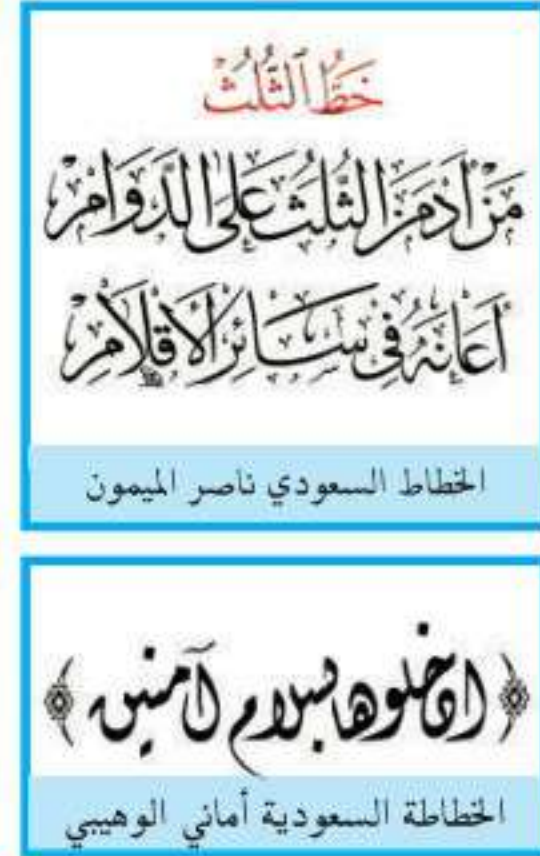 خَطُّ الثُّلُثْ
مَنْ أَدْمَنَ الثُّلُثَ عَلَى الدَّوَامْ
أَعَانَهُ فِي سَائِرِ الْأَقْلَامْ
الخطاط السعودي ناصر الميمون
﴿ ادخلوها بسلام آمنين ﴾
الخطاطة السعودية أماني الوهيبي